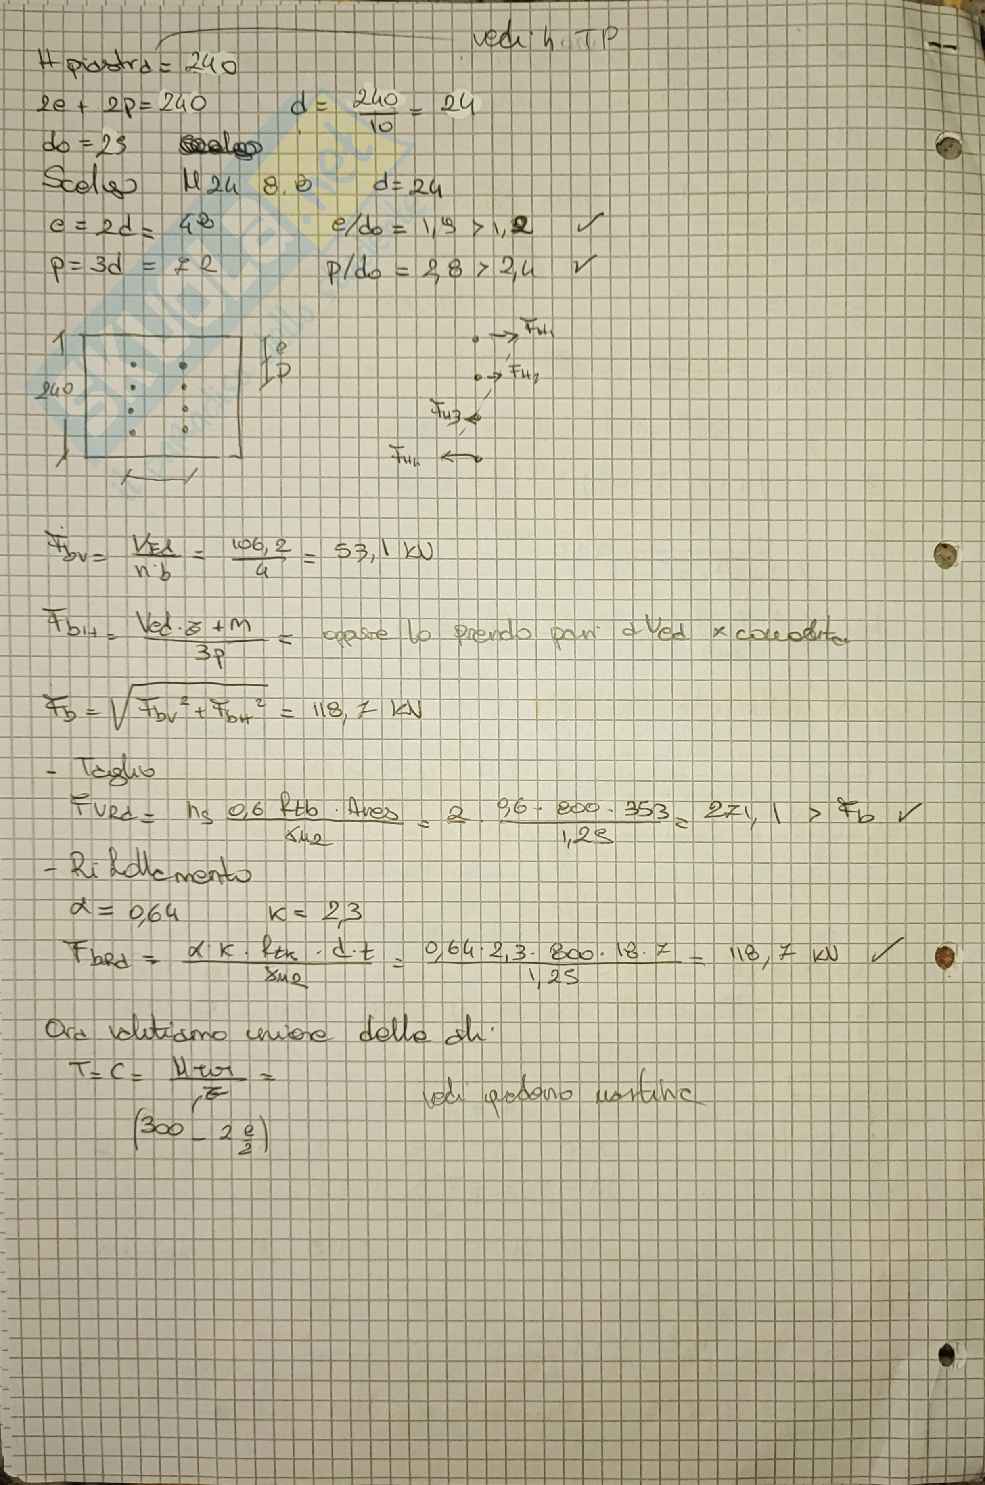 vedi h. TP
H piastra = 240
2e + 2p = 240 d = 240/10 = 24
do = 25
Scelgo M24 8.8 d = 24
e = 2d = 48 e/do = 1,9 > 1,2 ✓
p = 3d = 72 p/do = 2,8 > 2,4 ✓
e
p
240
FH1
FH2
FH3
FH4
Fbv = VEd/n·b = 106,2/4 = 53,1 kN
FbH = Ved·z + M/3p = oppure lo prendo pari a Ved x comodità
Fb = √Fbv² + FbH² = 118,7 kN
- Taglio
FVRd = ns 0,6 ftb · Ares/γM2 = 2 · 0,6 · 800 · 353/1,25 = 271,1 > Fb ✓
- Rifollamento
α = 0,64 K = 2,3
FbRd = α·K·ftk·d·t/γM2 = 0,64·2,3·800·18·7/1,25 = 118,7 kN ✓
Ora valutiamo unione delle ali:
T = C = /z =
(300 - 2 e/2)
vedi quaderno
SKUOLA.net